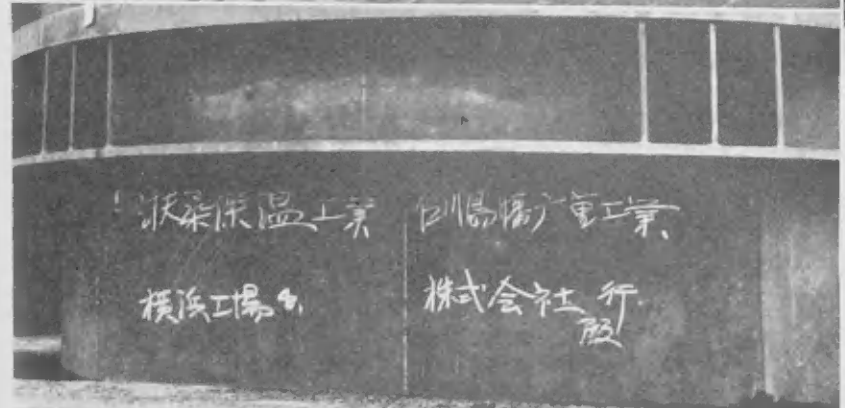 扶桑保温工業
横浜工場
石川島播广重工業
株式会社 行
殿